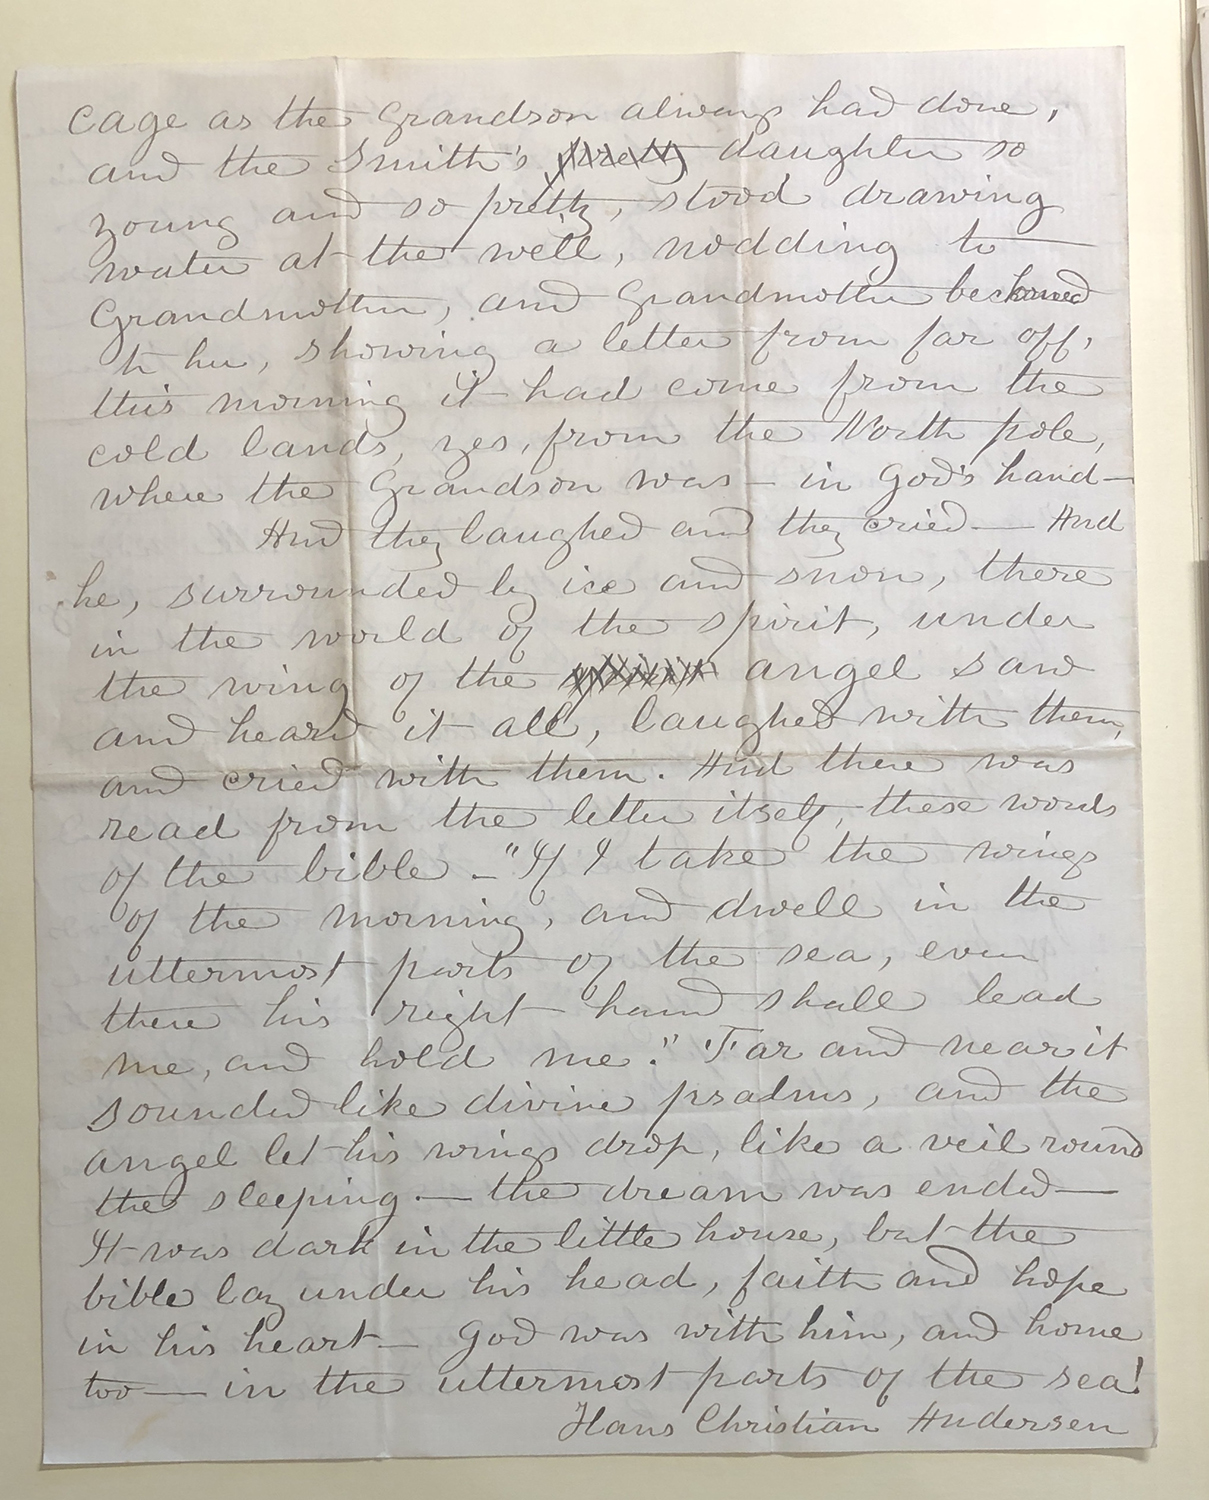 cage as the Grandson always had done,
and the Smith's pretty daughter so
young and so pretty, stood drawing
water at the well, nodding to
Grandmother, and Grandmother beckoned
to her, showing a letter from far off,
this morning it had come from the
cold lands, yes, from the North pole,
where the Grandson was — in God's hand —
And they laughed and they cried — And
he, surrounded by ice and snow, there
in the world of the spirit, under
the wing of the angel saw
and heard it all, laughed with them,
and cried with them. And there was
read from the letter itself, these words
of the bible — "If I take the wings
of the morning, and dwell in the
uttermost parts of the sea, even
there his right hand shall lead
me, and hold me." Far and near it
sounded like divine psalms, and the
angel let his wings drop, like a veil round
the sleeping. — the dream was ended —
It was dark in the little house, but the
bible lay under his head, faith and hope
in his heart — God was with him, and home
too — in the uttermost parts of the sea!
Hans Christian Andersen